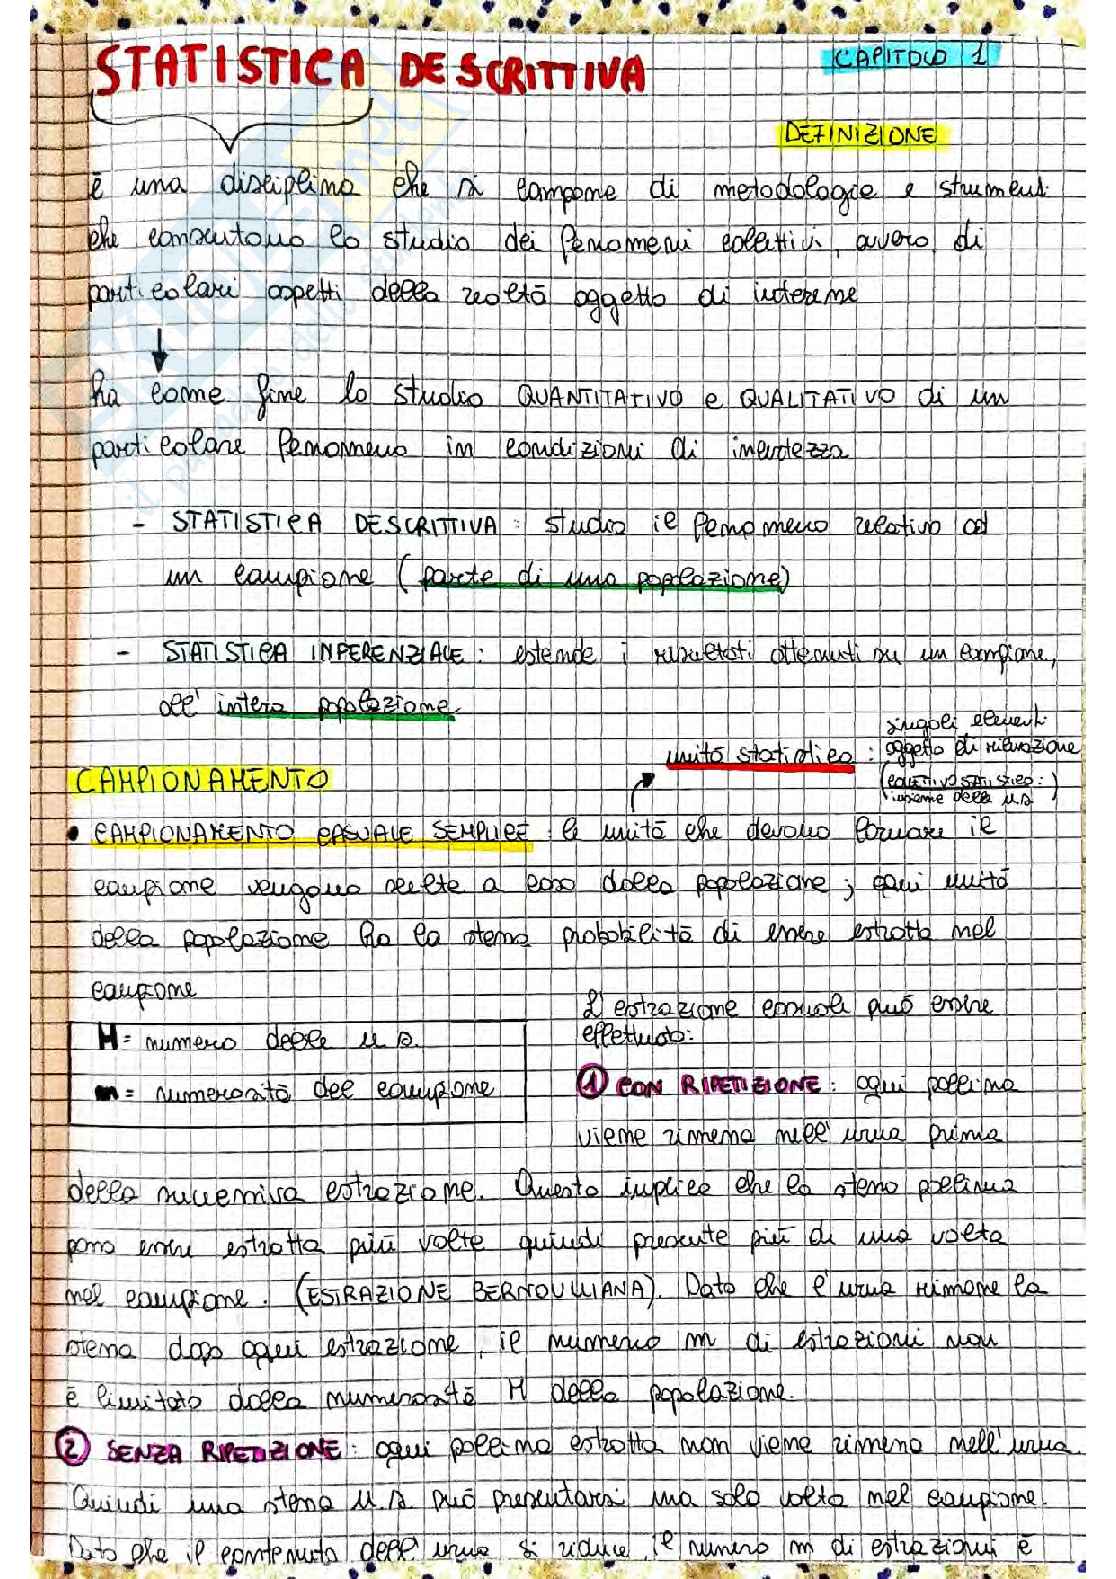 STATISTICA DESCRITTIVA
CAPITOLO 1
DEFINIZIONE
è una disciplina che si compone di metodologie e strumenti
che consentono lo studio dei fenomeni collettivi, ovvero di
particolari aspetti della realtà oggetto di interesse
ha come fine lo studio QUANTITATIVO e QUALITATIVO di un
particolare fenomeno in condizioni di incertezza
- STATISTICA DESCRITTIVA: studia il fenomeno relativo ad
un campione (parte di una popolazione)
- STATISTICA INFERENZIALE: estende i risultati ottenuti su un campione,
all'intera popolazione.
unità statistica: singoli elementi
oggetto di rilevazione
(COLLETTIVO STATISTICO:
insieme delle u.s)
CAMPIONAMENTO
• CAMPIONAMENTO CASUALE SEMPLICE: le unità che devono formare il
campione vengono scelte a caso dalla popolazione; ogni unità
della popolazione ha la stessa probabilità di essere estratta nel
campione
N = numero delle u.s.
n = numerosità del campione
L'estrazione casuale può essere
effettuata:
① CON RIPETIZIONE: ogni pallina
viene rimessa nell'urna prima
della successiva estrazione. Questo implica che la stessa pallina
possa essere estratta più volte quindi presente più di una volta
nel campione. (ESTRAZIONE BERNOULLIANA). Dato che l'urna rimane la
stessa dopo ogni estrazione, il numero n di estrazioni non
è limitato dalla numerosità N della popolazione.
② SENZA RIPETIZIONE: ogni pallina estratta non viene rimessa nell'urna.
Quindi una stessa u.s. può presentarsi una sola volta nel campione.
Dato che il contenuto dell'urna si riduce, il numero n di estrazioni è